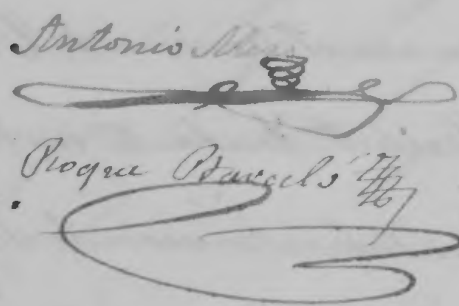 Antonio
Roque Barceló